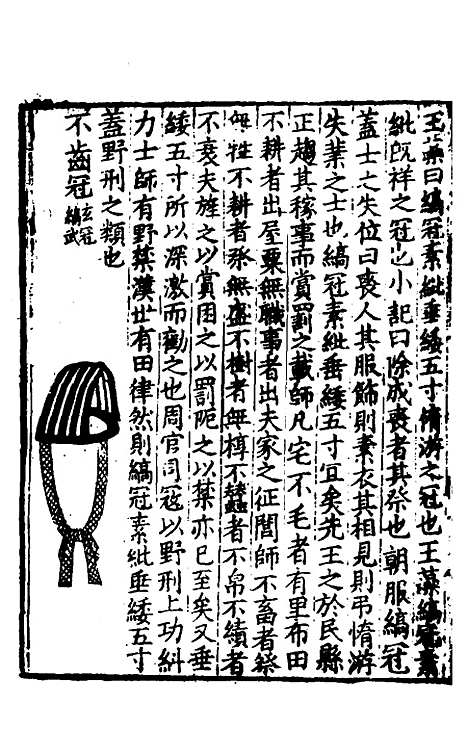 玉藻曰縞冠素紕垂緌五寸惰游之冠也玉藻縞冠素
紕旣祥之冠也小記曰除成喪者其祭也朝服縞冠
蓋士之失位曰喪人其服飾則素衣其相見則弔惰游
失業之士也縞冠素紕垂緌五寸宜矣先王之於民縣
正趨其稼事而賞罰之載師凡宅不毛者有里布田
不耕者出屋粟無職事者出夫家之征閭師不畜者祭
無牲不耕者祭無盛不樹者無椁不蠶者不帛不績者
不衰夫旌之以賞困之以罰阨之以禁亦已至矣又垂
緌五寸所以深激而勸之也周官司寇以野刑上功糾
力士師有野禁漢世有田律然則縞冠素紕垂緌五寸
蓋野刑之類也
不齒冠玄冠縞武